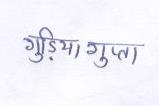 गुड़िया गुप्ता